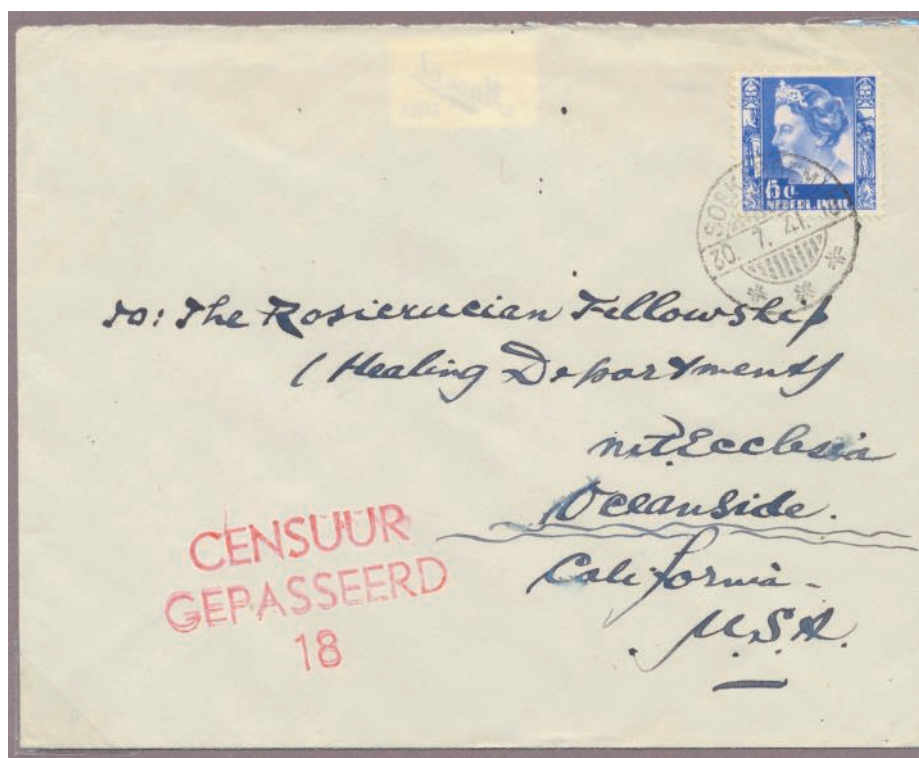 15 c.
NEDERL. INDIË
20. 7. 41. 10
To: The Rosicrucian Fellowship
(Healing Department)
Mt. Ecclesia
Oceanside.
California -
U.S.A.
CENSUUR
GEPASSEERD
18